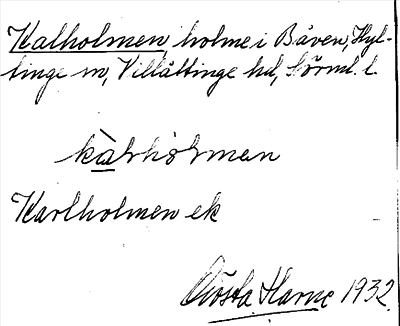 Kalholmen, holme i Båven, Hyl-
tinge sn, Villåttinge hd, Sörml. l.
kàlhòlman
Karlholmen ek
Gösta Harne 1932.